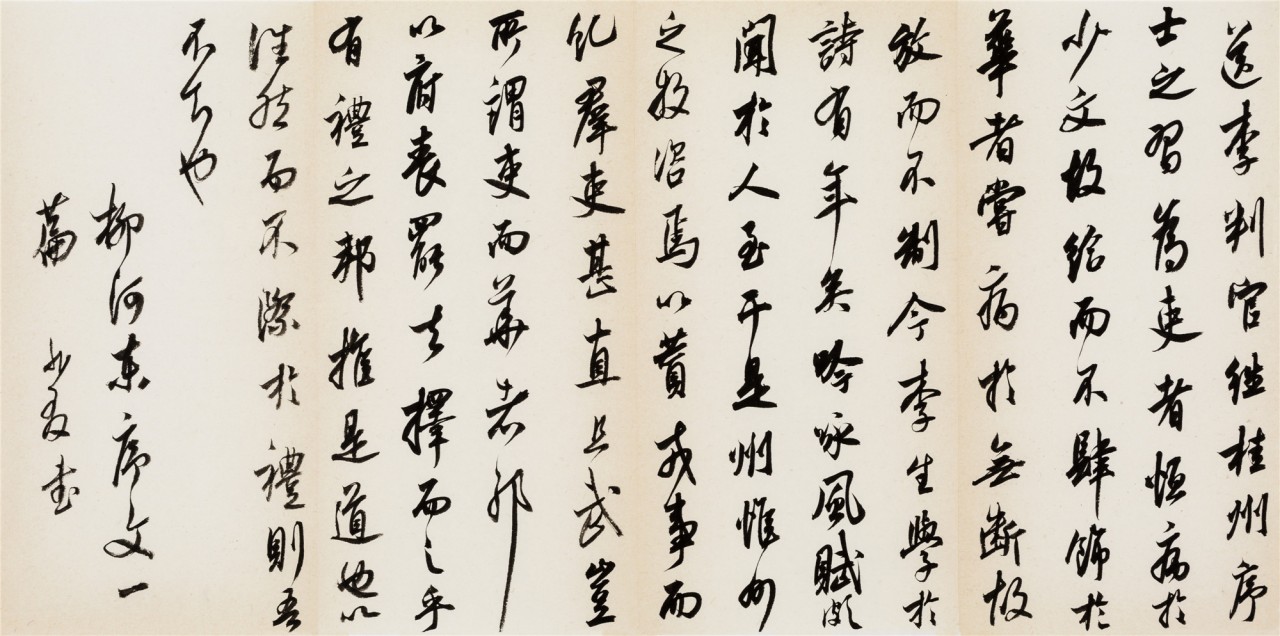 送李判官往桂州序
士之習為吏者恒病於
少文故給而不肆飾於
華者嘗病於無斷故
放而不制今李生學於
詩有年矣吟詠風賦頗
聞於人至于是州惟州
之牧沿焉以贊戎事而
糺羣吏甚直且武豈
所謂吏而華者邪
以府喪罷去擇而之乎
有禮之邦推是道也以
往然而不際於禮則吾
不知也
柳河東序文一
篇 書